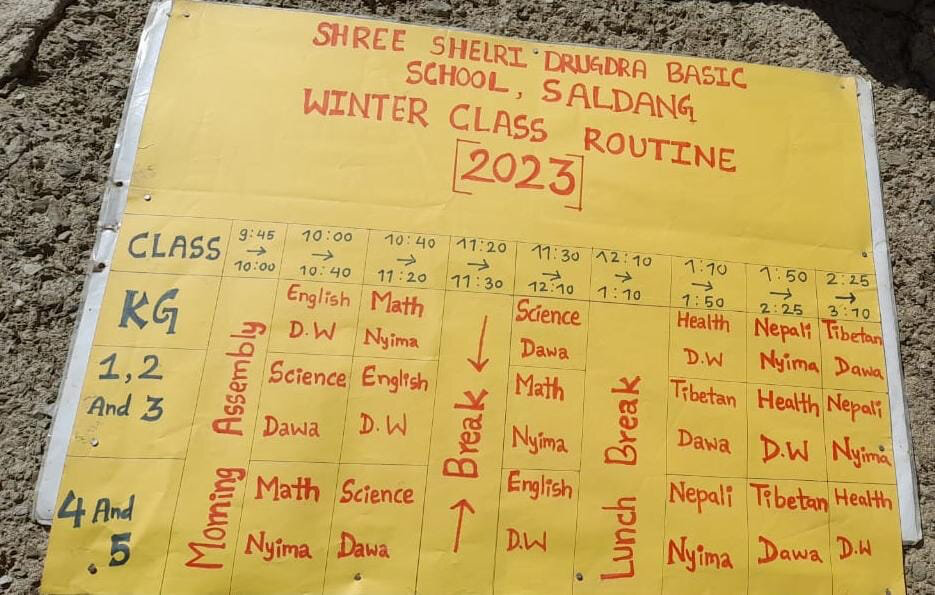 SHREE SHELRI DRUGDRA BASIC
SCHOOL, SALDANG
WINTER CLASS ROUTINE
[2023]
CLASS 9:45 → 10:00 10:00 → 10:40 10:40 → 11:20 11:20 → 11:30 11:30 → 12:10 12:10 → 1:10 1:10 → 1:50 1:50 → 2:25 2:25 → 3:10
KG English Math Science Health Nepali Tibetan
D.W Nyima Dawa D.W Nyima Dawa
1,2 Science English Math Tibetan Health Nepali
And 3 Dawa D.W Nyima Dawa D.W Nyima
4 And Math Science English Nepali Tibetan Health
5 Nyima Dawa D.W Nyima Dawa D.W
Morning Assembly
→ Break ←
Lunch Break